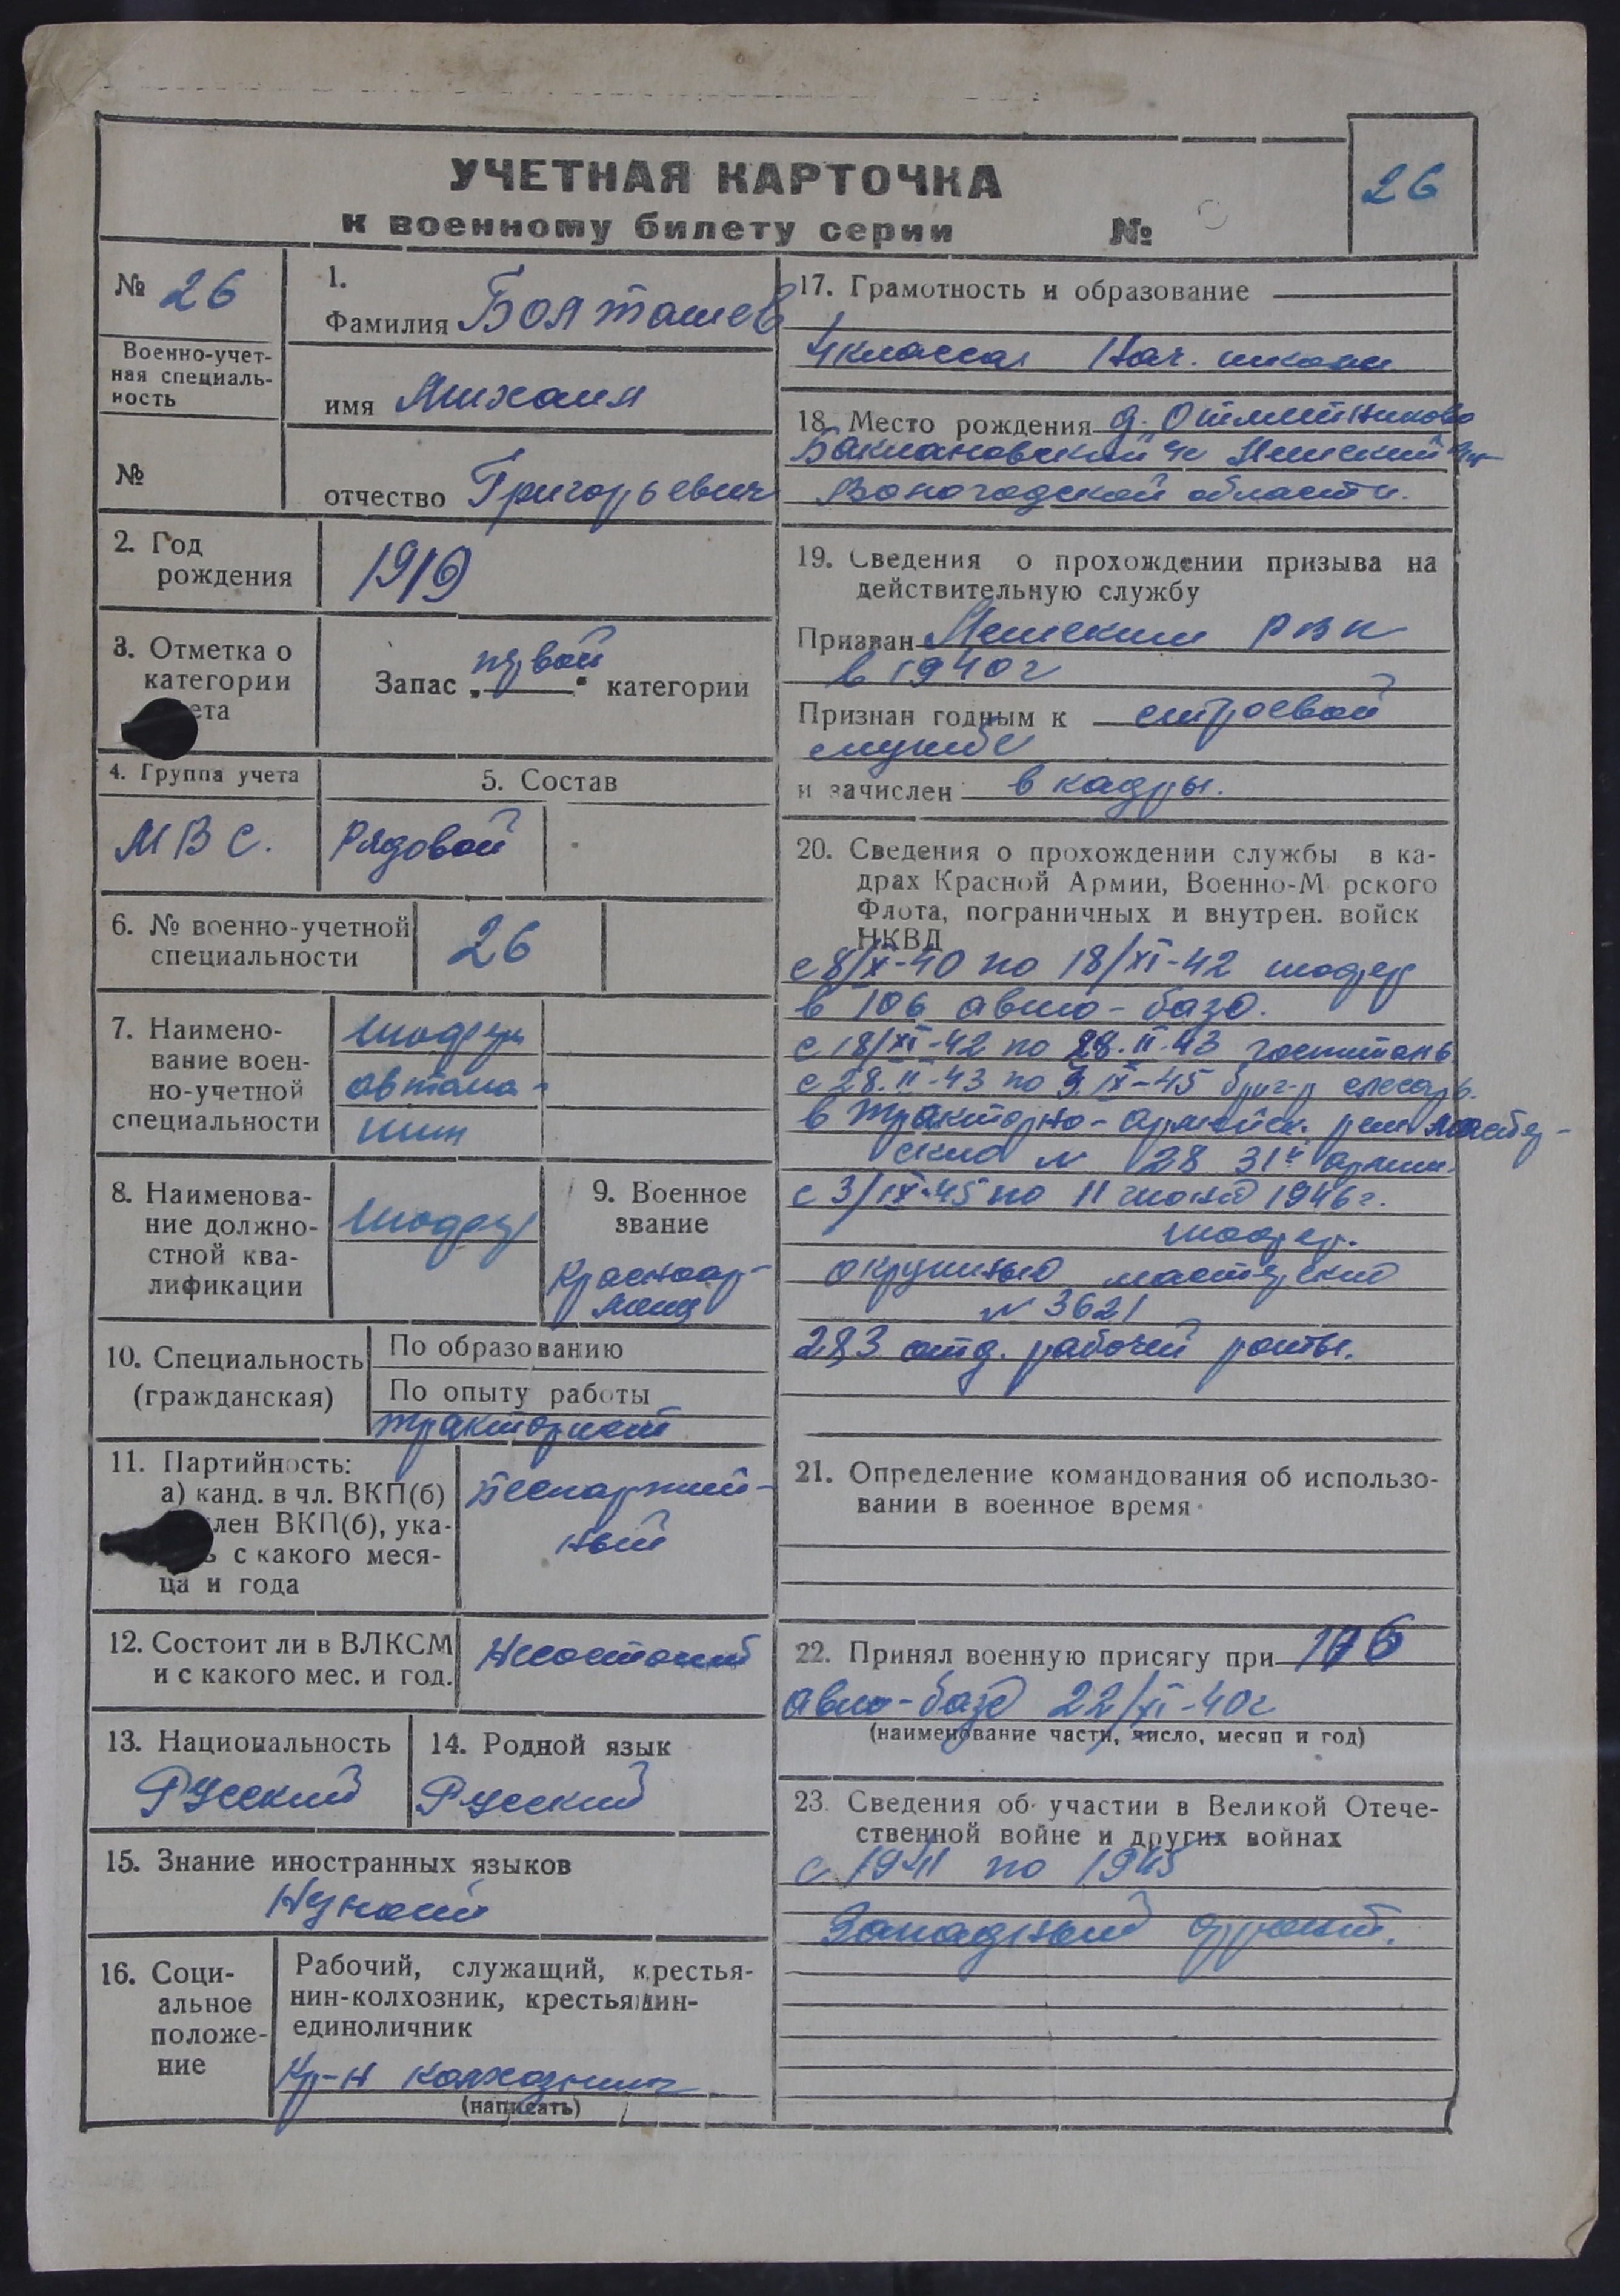 УЧЕТНАЯ КАРТОЧКА
к военному билету серии №
26
№ 26
Военно-учет-
ная специаль-
ность
№
1.
Фамилия Болташев
имя Михаил
отчество Григорьевич
2. Год
рождения
1919
3. Отметка о
категории
ета
Запас „первой“ категории
4. Группа учета
МВС.
5. Состав
Рядовой
6. № военно-учетной
специальности
26
7. Наимено-
вание воен-
но-учетной
специальности
шофер
автома-
шин
8. Наименова-
ние должно-
стной ква-
лификации
шофер
9. Военное
звание
Красноар-
меец
10. Специальность
(гражданская)
По образованию
По опыту работы
тракторист
11. Партийность:
а) канд. в чл. ВКП(б)
лен ВКП(б), ука-
ь с какого меся-
ца и года
Беспартий-
ный
12. Состоит ли в ВЛКСМ
и с какого мес. и год.
Не состоит
13. Национальность
Русский
14. Родной язык
Русский
15. Знание иностранных языков
16. Соци-
альное
положе-
ние
Рабочий, служащий, крестья-
нин-колхозник, крестьянин-
единоличник
Кр-н колхозник
(написать)
17. Грамотность и образование
4 класса Нач. школы
18. Место рождения д.
Баклановский
Вологодской области.
19. Сведения о прохождении призыва на
действительную службу
Призван РВК
в 1940 г
Признан годным к строевой
службе
и зачислен в кадры.
20. Сведения о прохождении службы в ка-
драх Красной Армии, Военно-М рского
Флота, пограничных и внутрен. войск
НКВД
с 8/X-40 по 18/XI-42 шофер
в 106 авто-базе.
с 18/XI-42 по 28.II-43 госпиталь
с 28.II-43 по 3.IX-45 слесарь.
в тракторно- рем мастер-
ские N 28 31й армии.
с 3/IX-45 по 11 1946 г.
шофер.
окружные мастерские
N 3621
283 отд. рабочей роты.
21. Определение командования об использо-
вании в военное время
22. Принял военную присягу при 106
авто-базе 22/XI-40 г
(наименование части, число, месяц и год)
23. Сведения об участии в Великой Отече-
ственной войне и других войнах
с 1941 по 1945
Западный фронт.